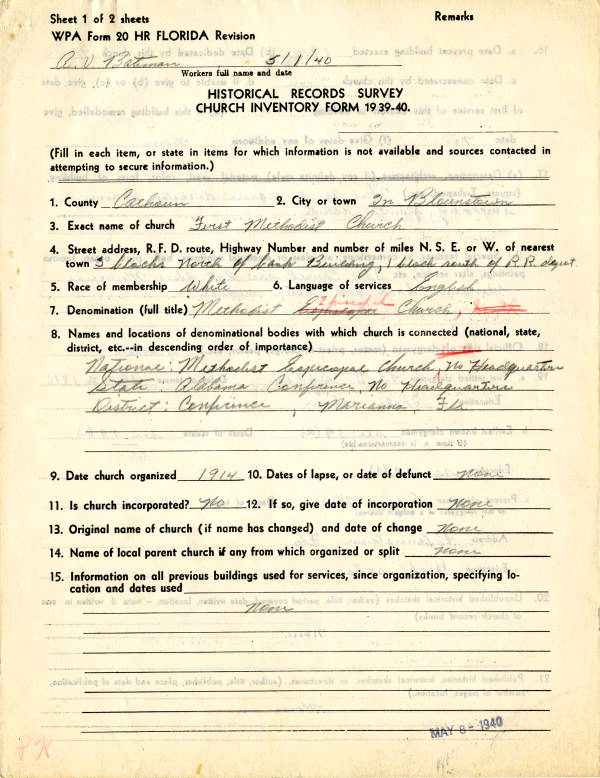 Sheet 1 of 2 sheets Remarks
WPA Form 20 HR FLORIDA Revision
R. V. Bateman 5/1/40
Workers full name and date
HISTORICAL RECORDS SURVEY
CHURCH INVENTORY FORM 1939-40.
(Fill in each item, or state in items for which information is not available and sources contacted in
attempting to secure information.)
1. County Calhoun 2. City or town In Blountstown
3. Exact name of church First Methodist Church
4. Street address, R. F. D. route, Highway Number and number of miles N. S. E. or W. of nearest
town 3 blocks North of bank Building, 1 block south of R.R. depot
5. Race of membership White 6. Language of services English
7. Denomination (full title) Methodist Episcopal Church, South
8. Names and locations of denominational bodies with which church is connected (national, state,
district, etc.--in descending order of importance)
National: Methodist Episcopal Church, South No Headquarters
State: Alabama Conference, No Headquarters
District: Conference, Marianna, Fla
9. Date church organized 1914 10. Dates of lapse, or date of defunct none
11. Is church incorporated? No 12. If so, give date of incorporation None
13. Original name of church (if name has changed) and date of change None
14. Name of local parent church if any from which organized or split none
15. Information on all previous buildings used for services, since organization, specifying lo-
cation and dates used
None
MAY 8 - 1940